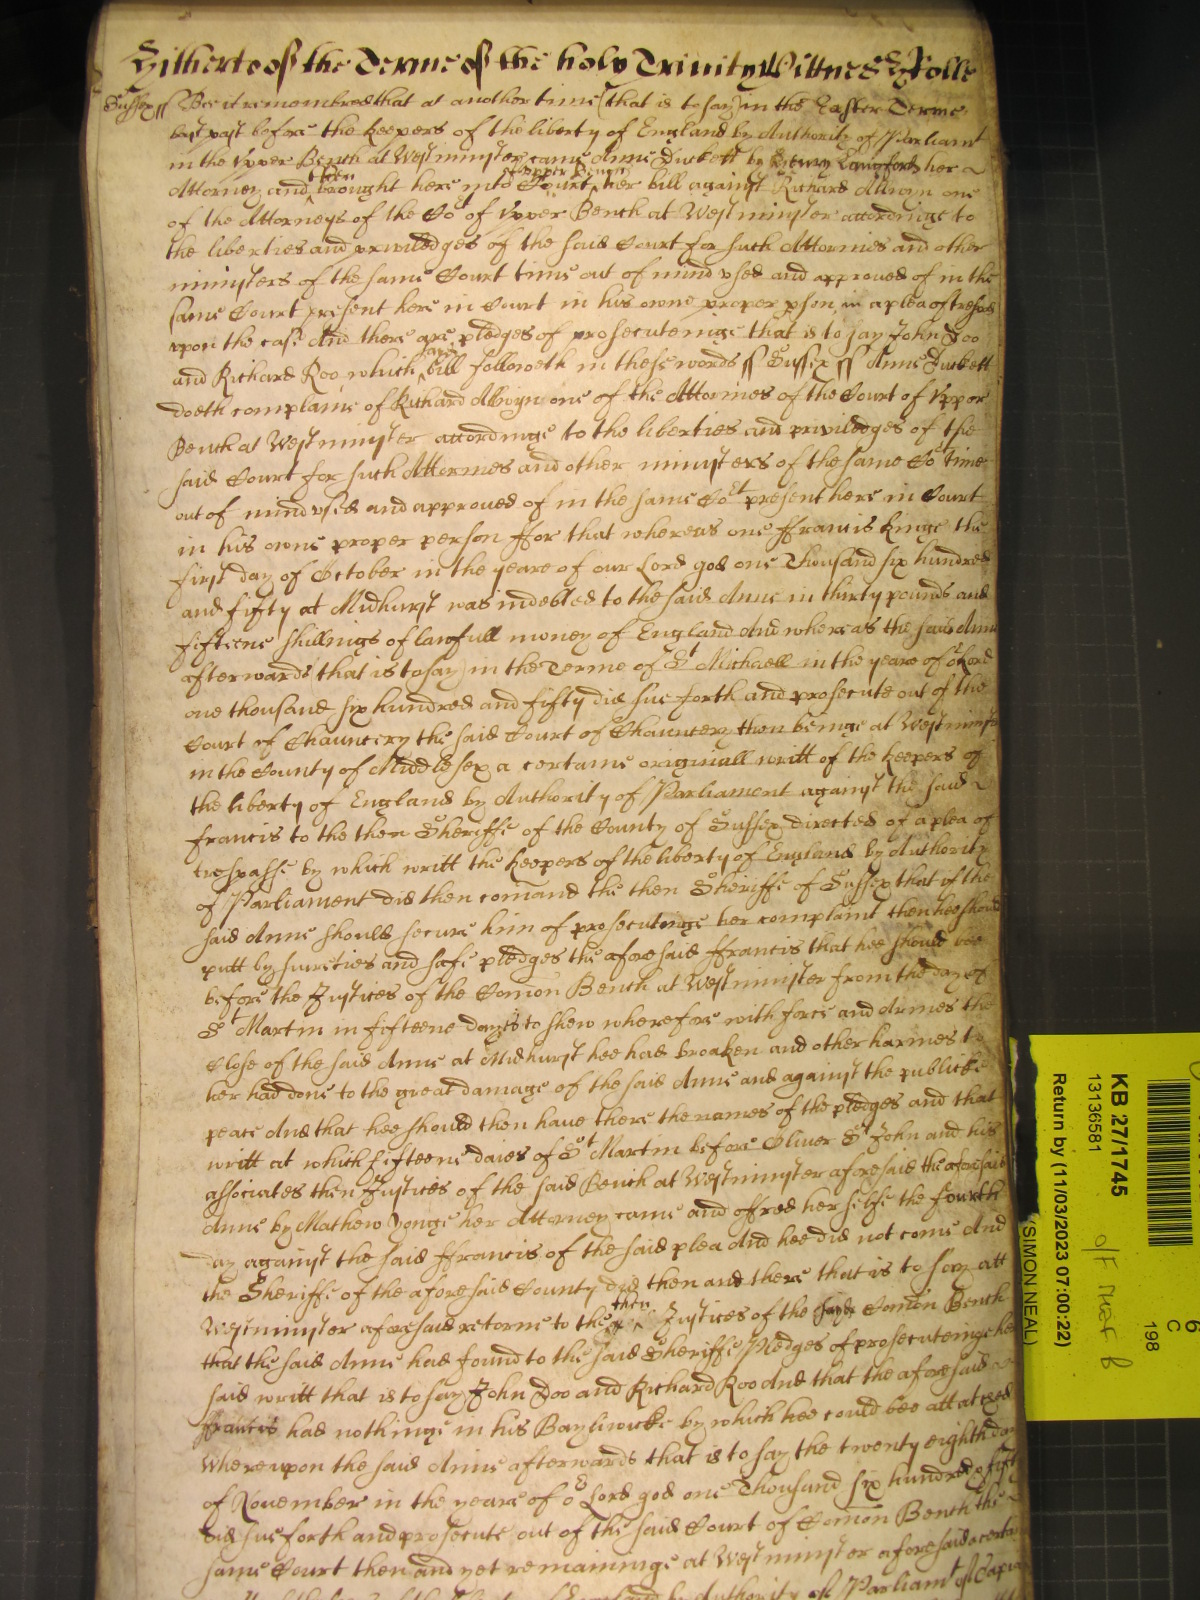 Hitherto of the Terme of the holy Trinity Wittnes Rolle
Sussex ss Bee it remembred that at another time (that is to say) in the Easter Terme
last past before the keepers of the liberty of England by Authority of Parliamt
in the Upper Bench at Westminster came Anne Duckett by Henry Langford her
Attorney and then brought here into the Court of upper Bench her bill against Richard Allwyn one
of the Attorneys of the Cot of Upper Bench at Westminster accordinge to
the liberties and priviledges of the said Court for such Attornies and other
ministers of the same Court time out of mind used and approved of in the
same Court present here in Court in his owne proper pson in a plea of trespas
upon the case And there are pledges of prosecuteinge that is to say John Doo
and Richard Roo which said bill followeth in these words ss Sussex ss Anne Duckett
doeth complaine of Richard Allwyn one of the Attornies of the Court of Upper
Bench at Westminster accordinge to the liberties and priviledges of the
said Court for such Attornies and other ministers of the same Cot time
out of mind used and approved of in the same Cot present here in Court
in his owne proper person ffor that whereas one ffrancis Kinge the
first day of October in the yeare of our Lord god one Thousand six hundred
and fifty at Midhurst was indebted to the said Anne in thirty pounds and
fifteene shillings of lawfull money of England And whereas the said Anne
afterwards (that is to say) in the Terme of St Michaell in the yeare of or Lord
one thousand six hundred and fifty did sue forth and prosecute out of the
Court of Chauncery the said Court of Chauncery then beinge at Westminster
in the County of Middlesex a certaine originall writt of the keepers of
the liberty of England by Authority of Parliament against the said
francis to the then Sheriffe of the County of Sussex directed of a plea of
trespasse by which writt the keepers of the liberty of England by Authority
of Parliament did then comand the then Sheriffe of Sussex that if the
said Anne should secure him of prosecutinge her complaint then hee should
putt by sureties and safe pledges the aforesaid ffrancis that hee should bee
before the Justices of the Comon Bench at Westminster from the day of
St Martin in fifteene dayes to shew wherefore with force and armes the
Close of the said Anne at Midhurst hee had broaken and other harmes to
her had done to the great damage of the said Anne and against the publicke
peace And that hee should then have there the names of the pledges and that
writt at which fifteene daies of St Martin before Oliver St John and his
associates then Justices of the said Bench at Westminster aforesaid the aforesaid
Anne by Mathew Yonge her Attorney came and offred her selfe the fourth
day against the said ffrancis of the said plea And hee did not come And
the Sheriffe of the aforesaid County did then and there that is to say att
Westminster aforesaid retorne to the then Justices of the said Comon Bench
that the said Anne had found to the said Sheriffe Pledges of prosecuteinge her
said writt that is to say John Doo and Richard Roo And that the aforesaid
ffrancis had nothinge in his Bayliwicke by which hee could bee attached
Whereupon the said Anne afterwards that is to say the twenty eighth day
of November in the yeare of or Lord god one Thousand six hundred & fifty
did sue forth and prosecute out of the said Court of Comon Bench the
same Court then and yet remaininge at Westminster aforesaid a certaine
by Authority of Parliamt of Capias
KB 27/1745
13136581
Return by (11/03/2023 07:00:22)
(SIMON NEAL)
198
C
6